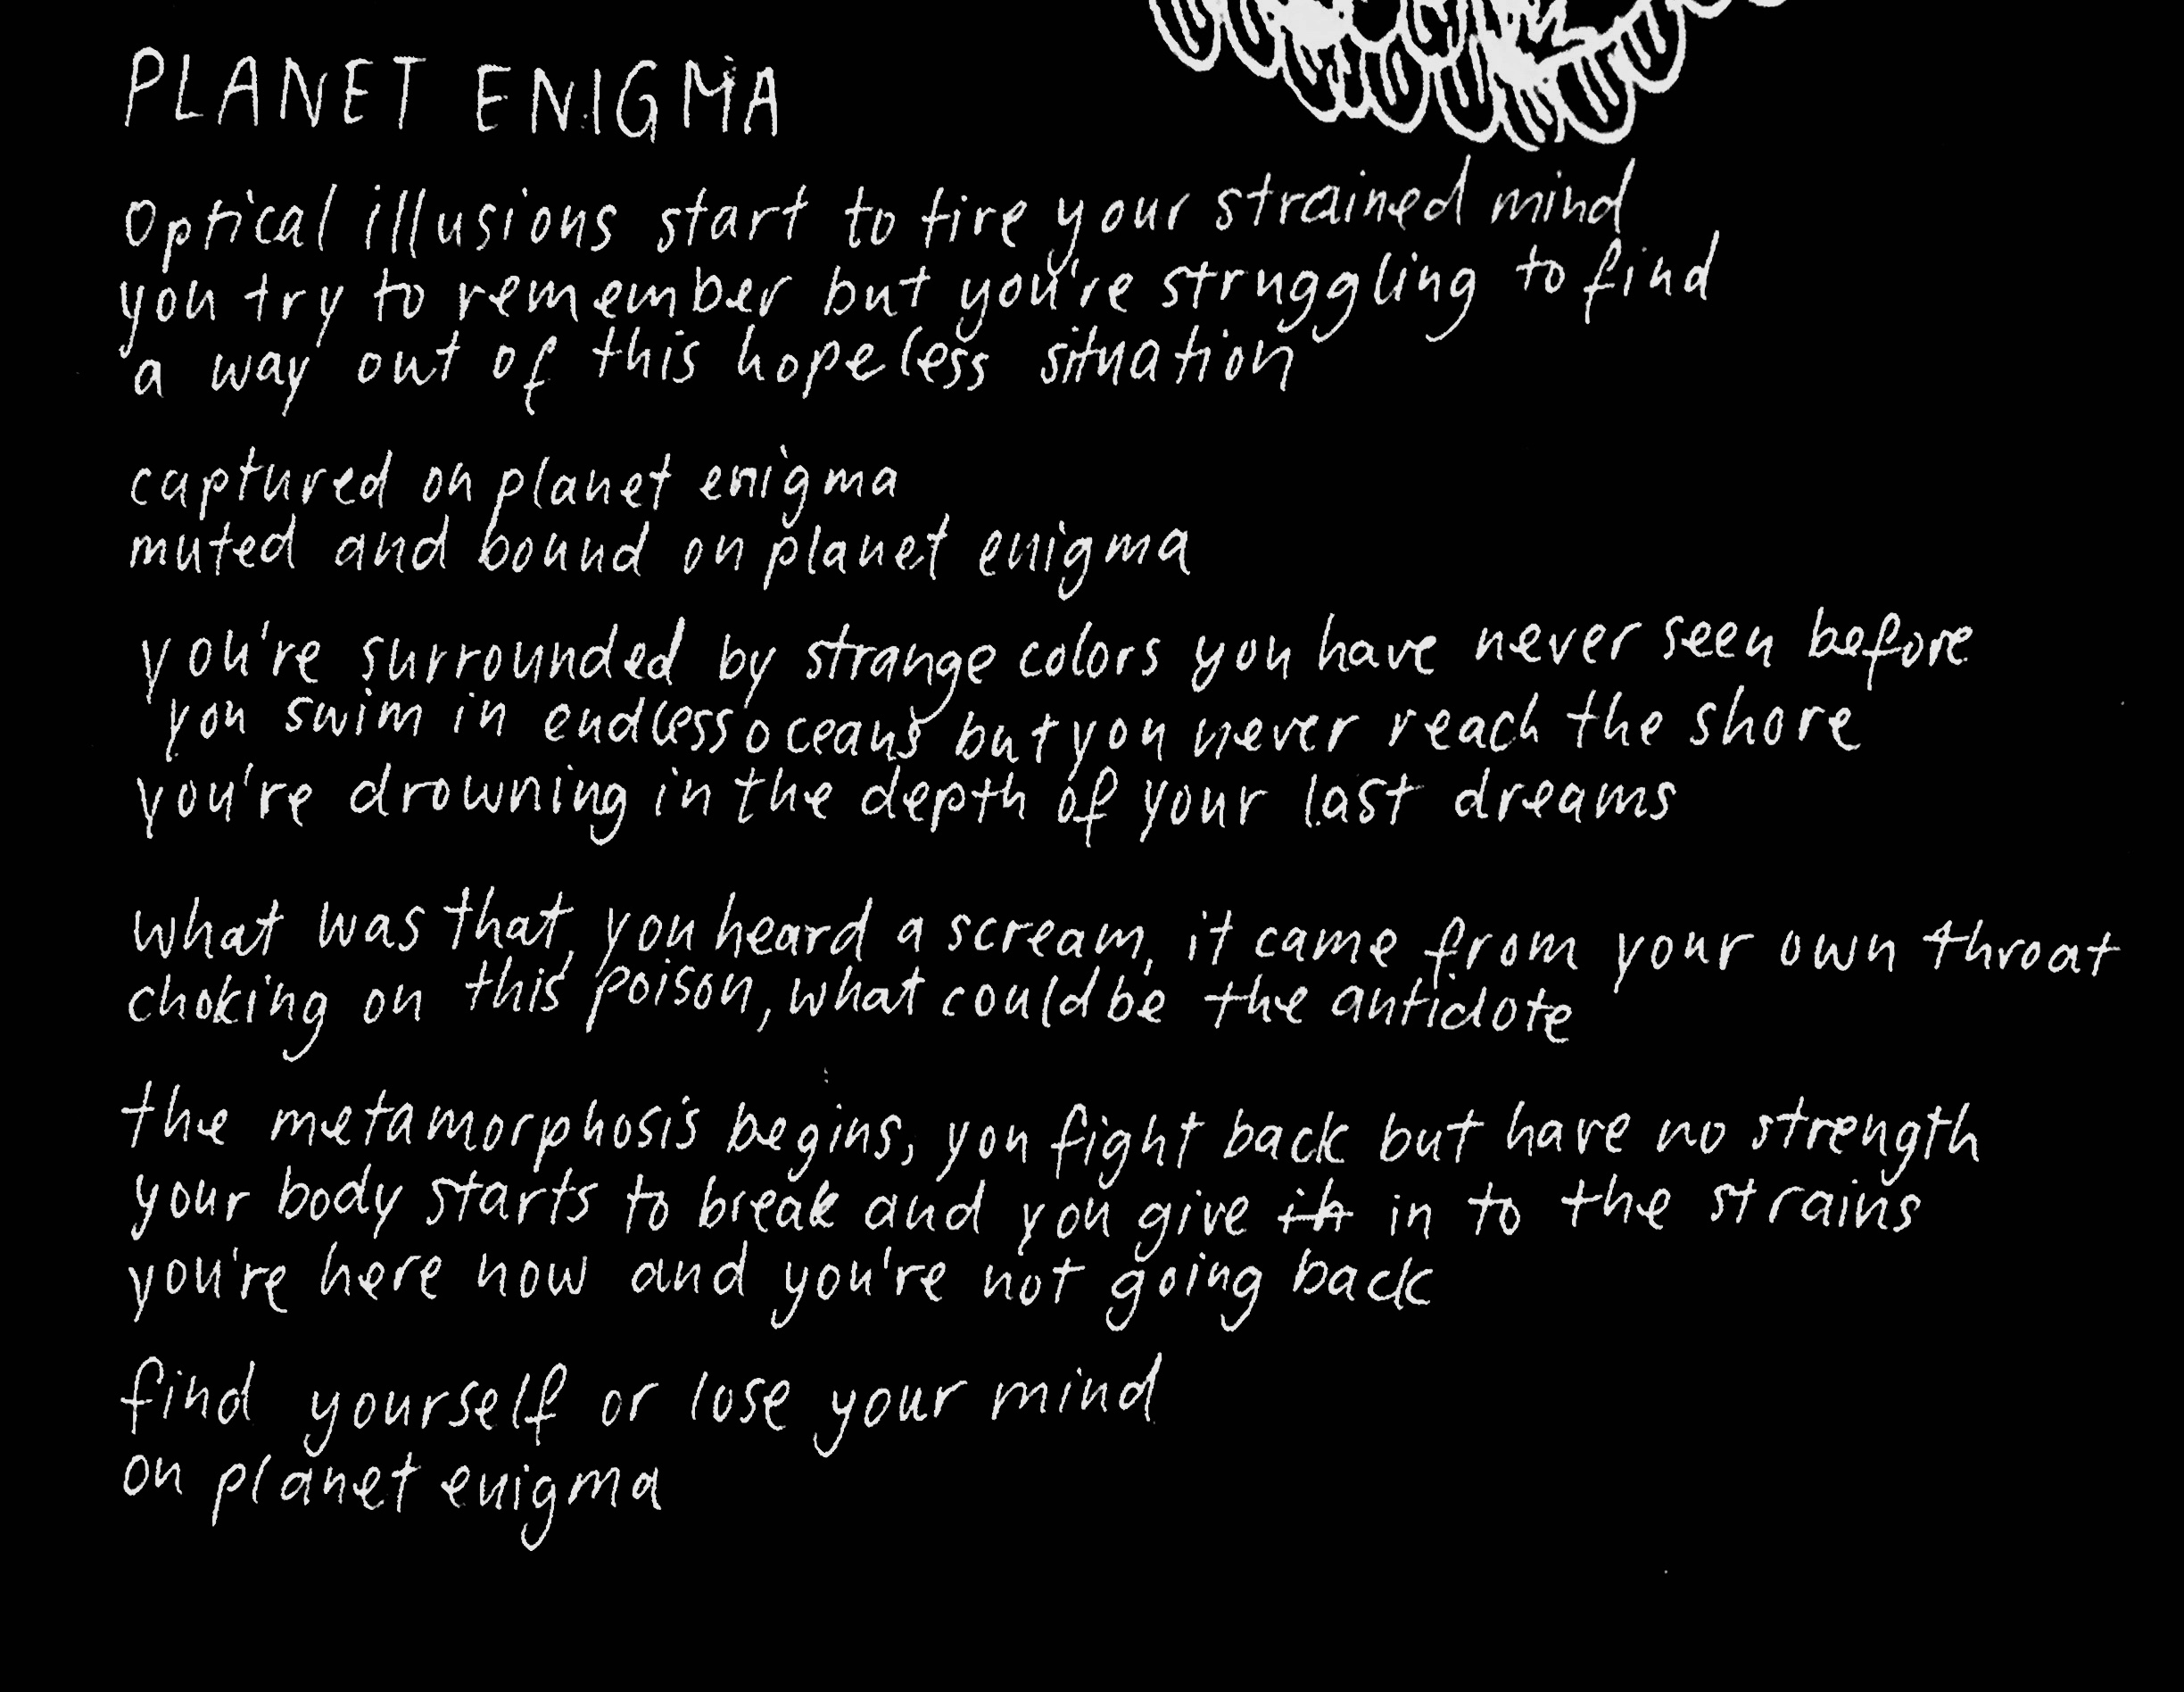 PLANET ENIGMA
Optical illusions start to tire your strained mind
you try to remember but you're struggling to find
a way out of this hopeless situation
captured on planet enigma
muted and bound on planet enigma
you're surrounded by strange colors you have never seen before
you swim in endless oceans but you never reach the shore
you're drowning in the depth of your last dreams
what was that, you heard a scream, it came from your own throat
choking on this poison, what could be the antidote
the metamorphosis begins, you fight back but have no strength
your body starts to break and you give in to the strains
you're here now and you're not going back
find yourself or lose your mind
on planet enigma